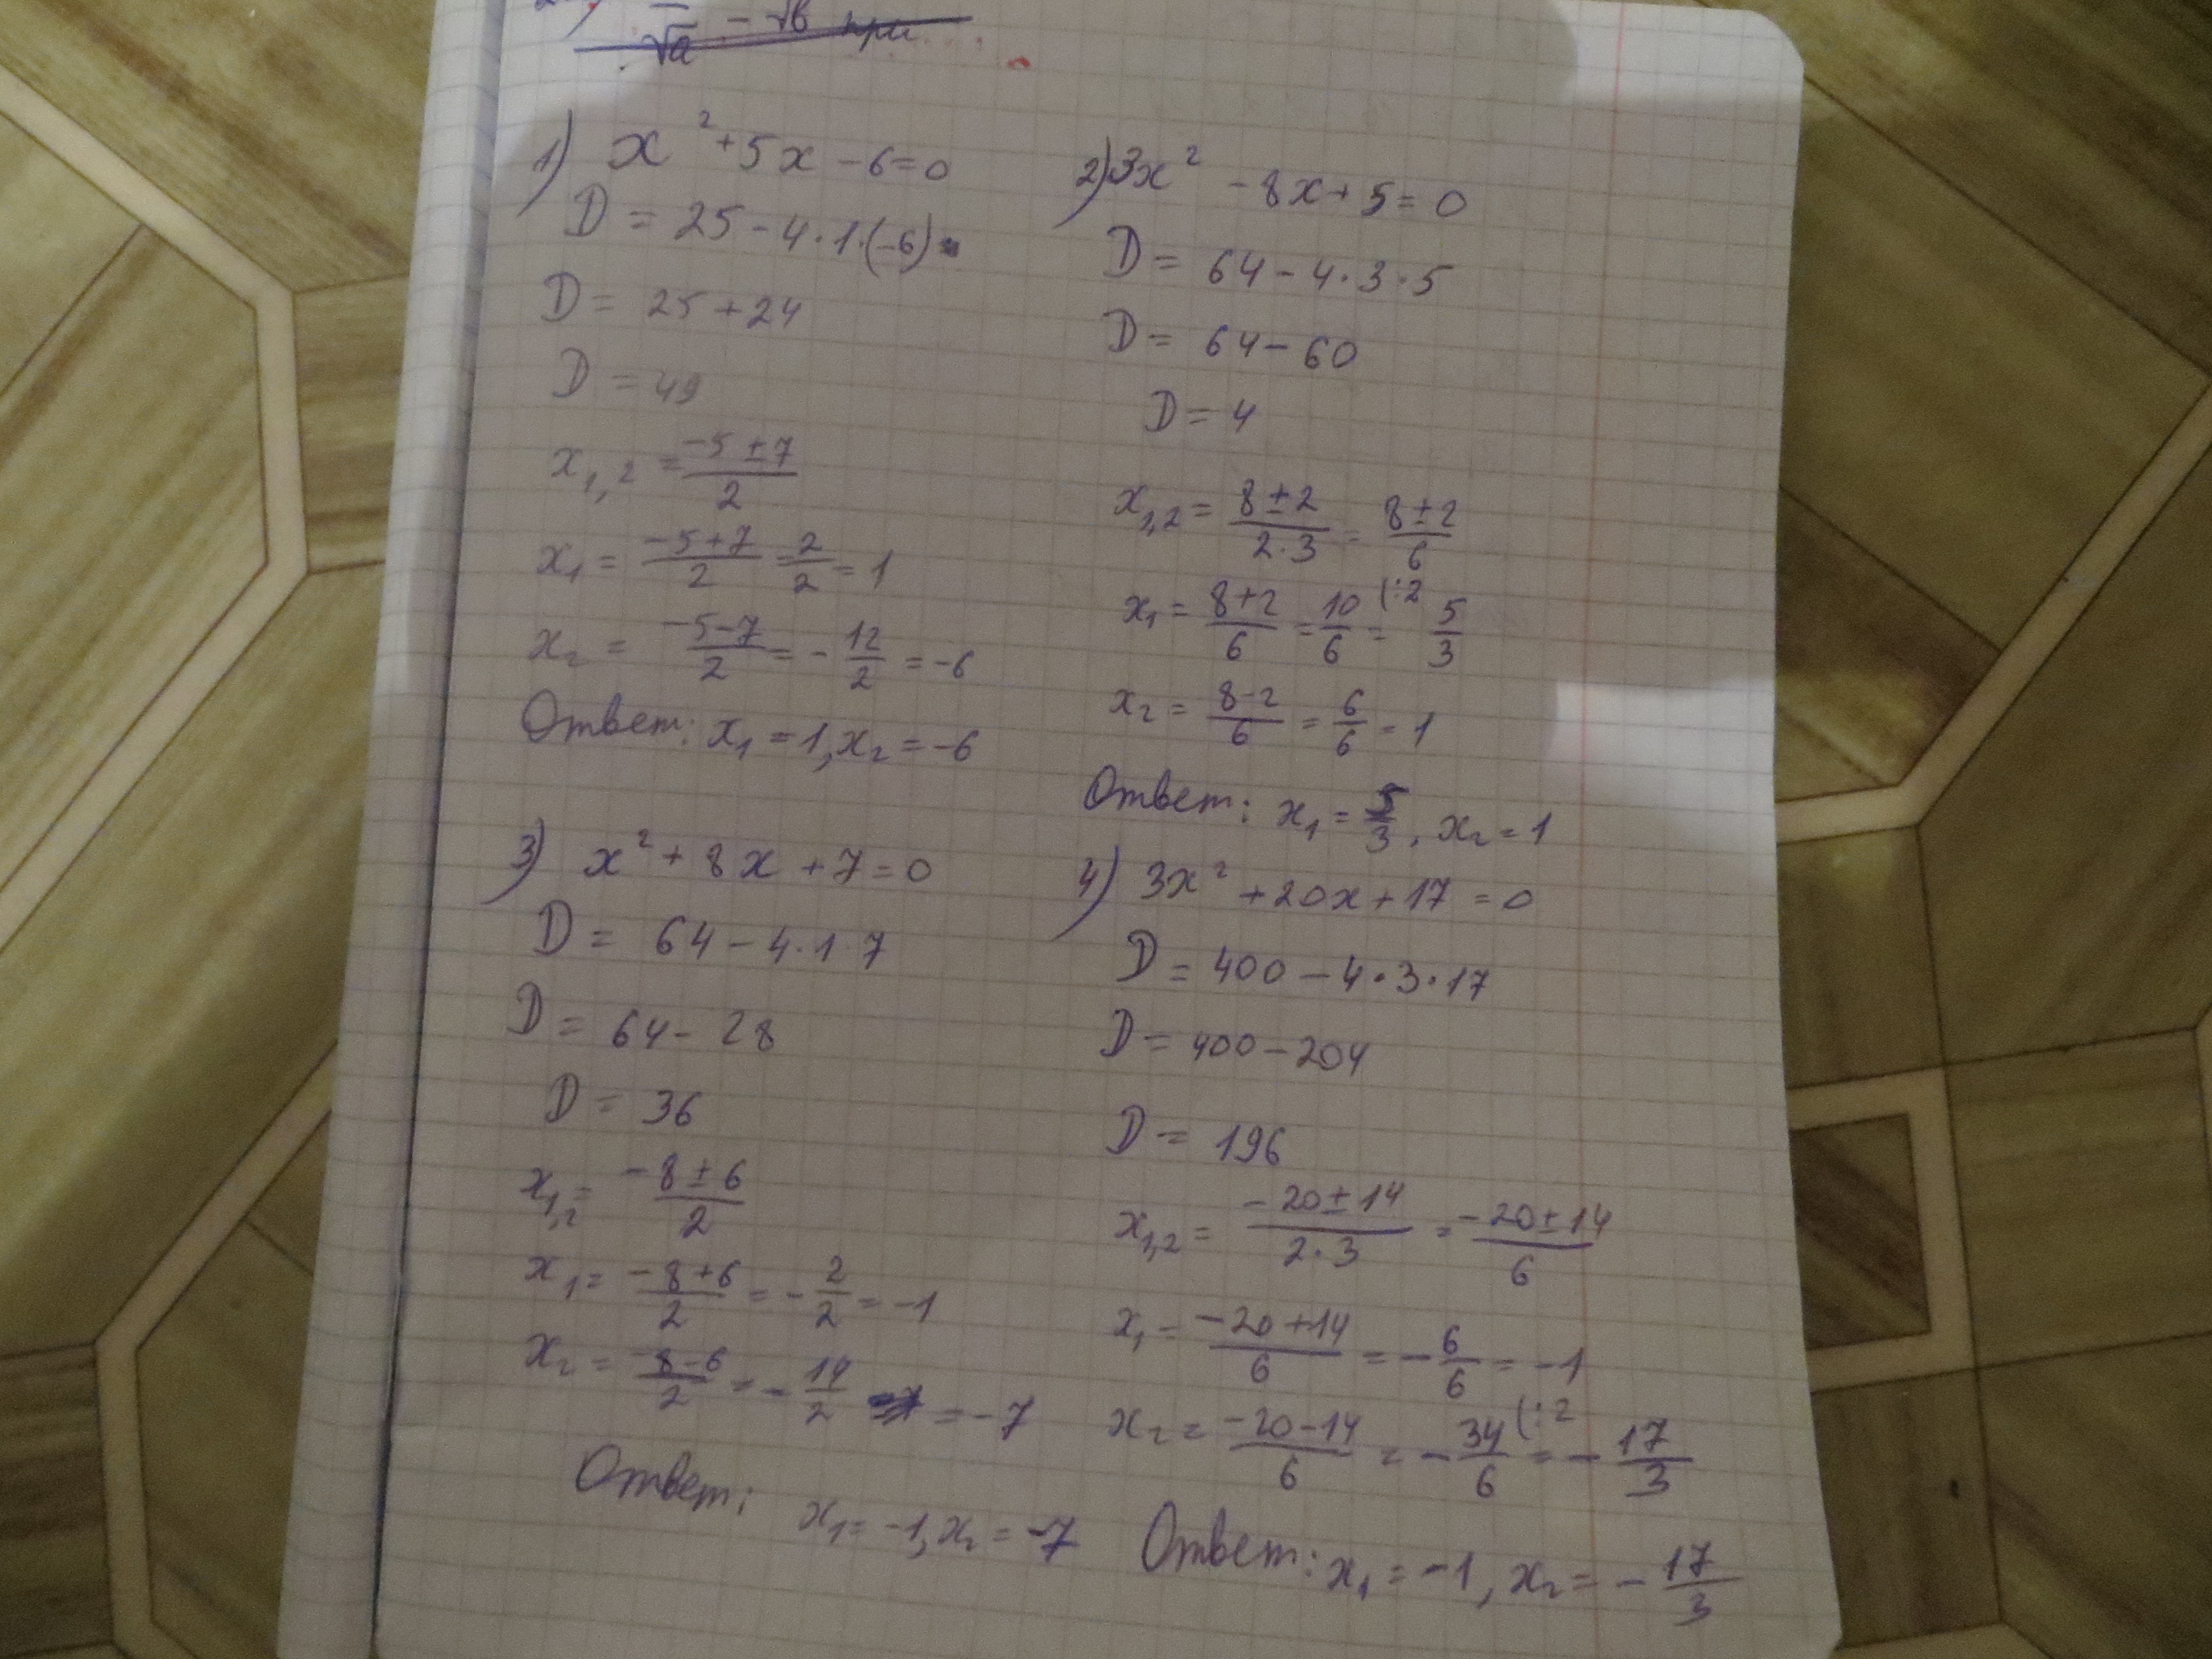 √a - √в при
1) x² + 5x - 6 = 0
D = 25 - 4·1·(-6)
D = 25 + 24
D = 49
x₁,₂ = (-5 ± 7)/2
x₁ = (-5+7)/2 = 2/2 = 1
x₂ = (-5-7)/2 = -12/2 = -6
Ответ: x₁ = 1, x₂ = -6
2) 3x² - 8x + 5 = 0
D = 64 - 4·3·5
D = 64 - 60
D = 4
x₁,₂ = (8 ± 2)/(2·3) = (8 ± 2)/6
x₁ = (8+2)/6 = 10/6 (:2 = 5/3
x₂ = (8-2)/6 = 6/6 = 1
Ответ: x₁ = 5/3, x₂ = 1
3) x² + 8x + 7 = 0
D = 64 - 4·1·7
D = 64 - 28
D = 36
x₁,₂ = (-8 ± 6)/2
x₁ = (-8+6)/2 = -2/2 = -1
x₂ = (-8-6)/2 = -14/2 = -7
Ответ: x₁ = -1, x₂ = -7
4) 3x² + 20x + 17 = 0
D = 400 - 4·3·17
D = 400 - 204
D = 196
x₁,₂ = (-20 ± 14)/(2·3) = (-20 ± 14)/6
x₁ = (-20+14)/6 = -6/6 = -1
x₂ = (-20-14)/6 = -34/6 (:2 = -17/3
Ответ: x₁ = -1, x₂ = -17/3